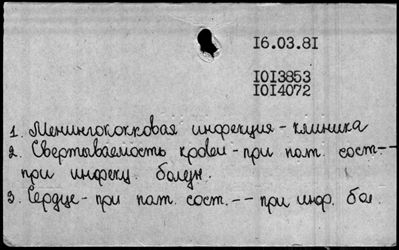 16.03.81
1013853
1014072
1. Менингококковая инфекция - клиника
2. Свертываемость крови - при пат. сост. --
при инфекц. болезн.
3. Сердце - при пат. сост. -- при инф. бол.